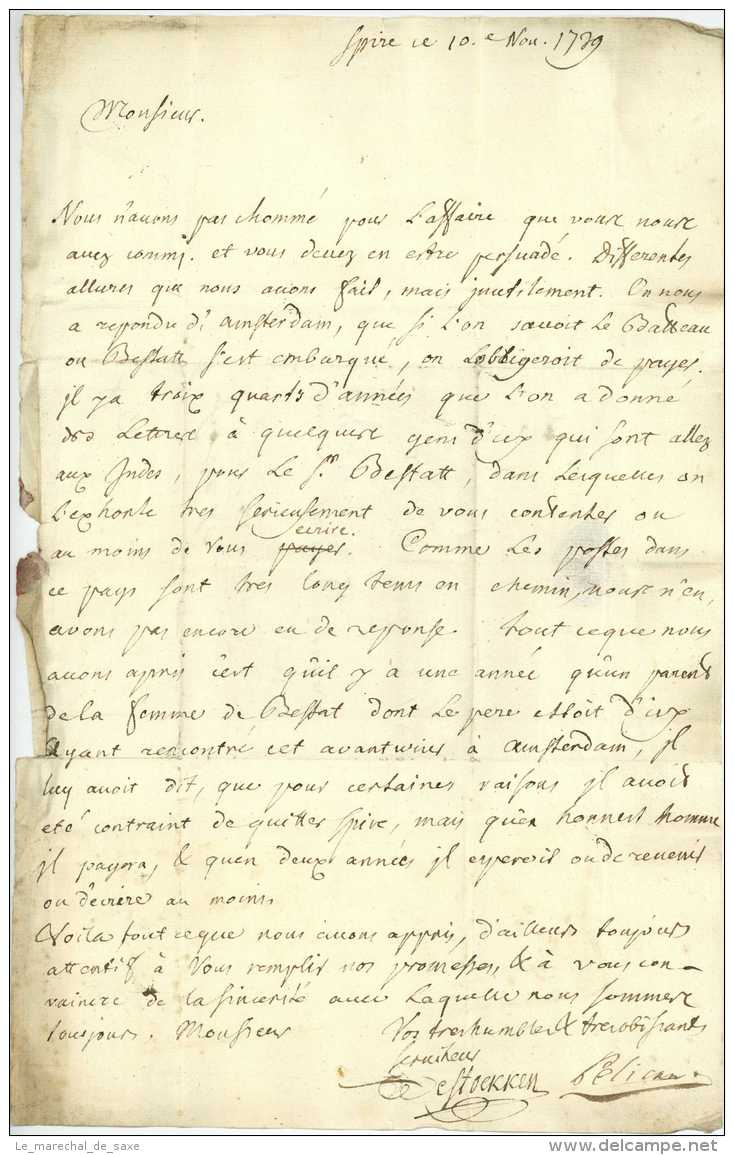 Spire ce 10.e Nov. 1739
Monsieur.
Nous n'avons pas chommé pour L'affaire que vous nous
avez commi. et vous devez en estre persuadé. Differentes
allures que nous avons fait, mais inutilement. On nous
a repondu d'amsterdam, que si L'on savoit Le Batteau
ou Bestatt s'est embarqué, on L'obligeroit de payer.
il y a troix quarts d'années que L'on a donné
des Lettres à quelques gens d'ix qui sont allez
aux Indes, pour Le Sr. Bestatt, dans Lesquelles on
L'exhorte tres serieusement de vous contenter ou
ecrire.
au moins de vous payer. Comme Les postes dans
ce pays sont tres long tems en chemin, nous n'en,
avons pas encore eu de reponse. tout ce que nous
avons apris c'est qu'il y a une année qu'un parent
de La femme de Bestat dont Le pere estoit d'ix
ayant rencontré cet avanturier à amsterdam, il
luy avoit dit, que pour certaines raisons il avoit
eté contraint de quitter Spire, mais qu'en honnest homme
il payera, & qu'en deux années il esperoit ou de revenir
ou d'écrire au moins.
Voila tout ce que nous avons appris, d'ailleurs toujours
attentif à Vous remplir nos promesses, & à vous con-
vaincre de La Sincerité avec Laquelle nous sommes
toujours. Monsieur Vos tres humbles & tres obissants
serviteurs
De Stockken Pelican.
Le_marechal_de_saxe
www.delcampe.net